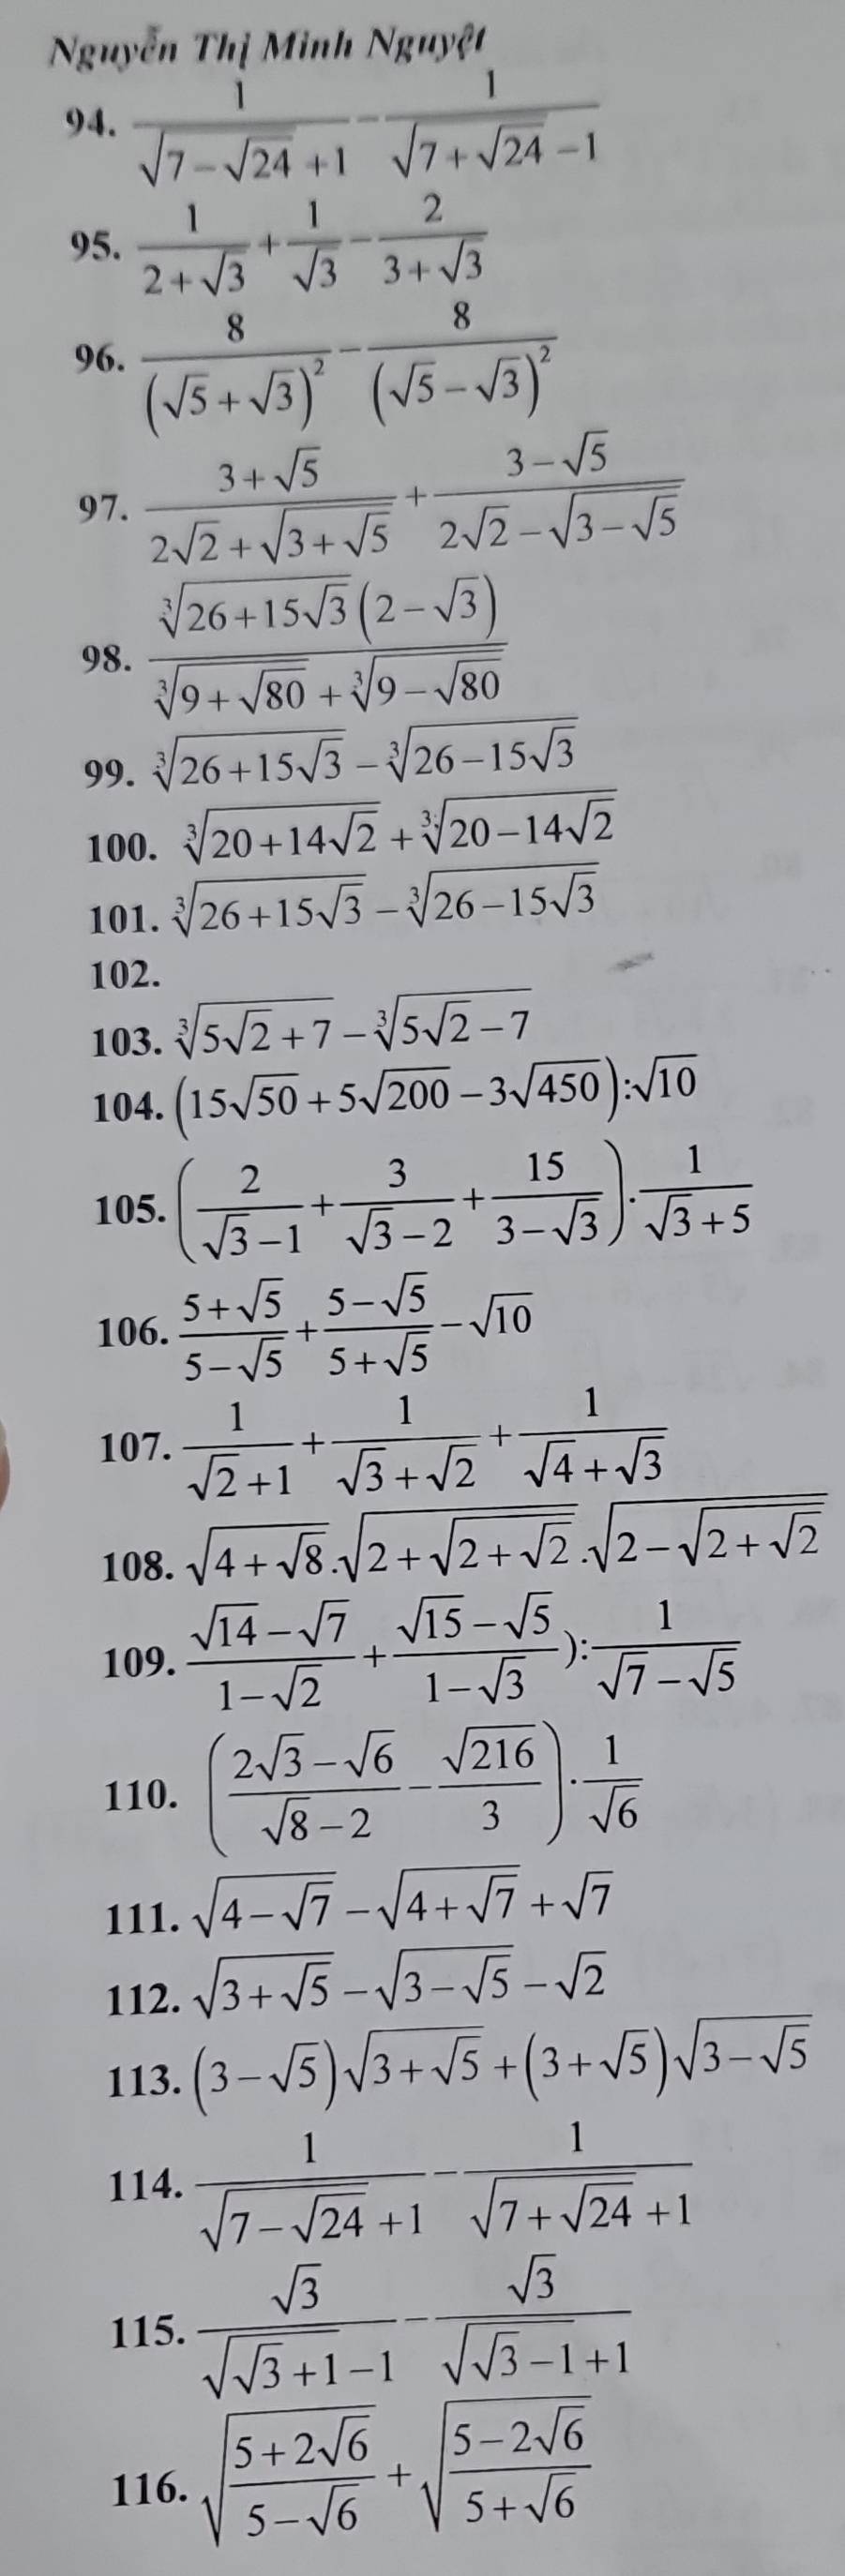 Nguyễn Thị Minh Nguyệt
94. \frac{1}{\sqrt{7-\sqrt{24}}+1} - \frac{1}{\sqrt{7+\sqrt{24}}-1}
95. \frac{1}{2+\sqrt{3}} + \frac{1}{\sqrt{3}} - \frac{2}{3+\sqrt{3}}
96. \frac{8}{(\sqrt{5}+\sqrt{3})^2} - \frac{8}{(\sqrt{5}-\sqrt{3})^2}
97. \frac{3+\sqrt{5}}{2\sqrt{2}+\sqrt{3+\sqrt{5}}} + \frac{3-\sqrt{5}}{2\sqrt{2}-\sqrt{3-\sqrt{5}}}
98. \frac{\sqrt[3]{26+15\sqrt{3}}(2-\sqrt{3})}{\sqrt[3]{9+\sqrt{80}}+\sqrt[3]{9-\sqrt{80}}}
99. \sqrt[3]{26+15\sqrt{3}} - \sqrt[3]{26-15\sqrt{3}}
100. \sqrt[3]{20+14\sqrt{2}} + \sqrt[3]{20-14\sqrt{2}}
101. \sqrt[3]{26+15\sqrt{3}} - \sqrt[3]{26-15\sqrt{3}}
102.
103. \sqrt[3]{5\sqrt{2}+7} - \sqrt[3]{5\sqrt{2}-7}
104. (15\sqrt{50}+5\sqrt{200}-3\sqrt{450}):\sqrt{10}
105. \left(\frac{2}{\sqrt{3}-1}+\frac{3}{\sqrt{3}-2}+\frac{15}{3-\sqrt{3}}\right).\frac{1}{\sqrt{3}+5}
106. \frac{5+\sqrt{5}}{5-\sqrt{5}} + \frac{5-\sqrt{5}}{5+\sqrt{5}} - \sqrt{10}
107. \frac{1}{\sqrt{2}+1} + \frac{1}{\sqrt{3}+\sqrt{2}} + \frac{1}{\sqrt{4}+\sqrt{3}}
108. \sqrt{4+\sqrt{8}}.\sqrt{2+\sqrt{2+\sqrt{2}}}.\sqrt{2-\sqrt{2+\sqrt{2}}}
109. \frac{\sqrt{14}-\sqrt{7}}{1-\sqrt{2}} + \frac{\sqrt{15}-\sqrt{5}}{1-\sqrt{3}}):\frac{1}{\sqrt{7}-\sqrt{5}}
110. \left(\frac{2\sqrt{3}-\sqrt{6}}{\sqrt{8}-2}-\frac{\sqrt{216}}{3}\right).\frac{1}{\sqrt{6}}
111. \sqrt{4-\sqrt{7}} - \sqrt{4+\sqrt{7}} + \sqrt{7}
112. \sqrt{3+\sqrt{5}} - \sqrt{3-\sqrt{5}} - \sqrt{2}
113. (3-\sqrt{5})\sqrt{3+\sqrt{5}} + (3+\sqrt{5})\sqrt{3-\sqrt{5}}
114. \frac{1}{\sqrt{7-\sqrt{24}}+1} - \frac{1}{\sqrt{7+\sqrt{24}}+1}
115. \frac{\sqrt{3}}{\sqrt{\sqrt{3}+1}-1} - \frac{\sqrt{3}}{\sqrt{\sqrt{3}-1}+1}
116. \sqrt{\frac{5+2\sqrt{6}}{5-\sqrt{6}}} + \sqrt{\frac{5-2\sqrt{6}}{5+\sqrt{6}}}